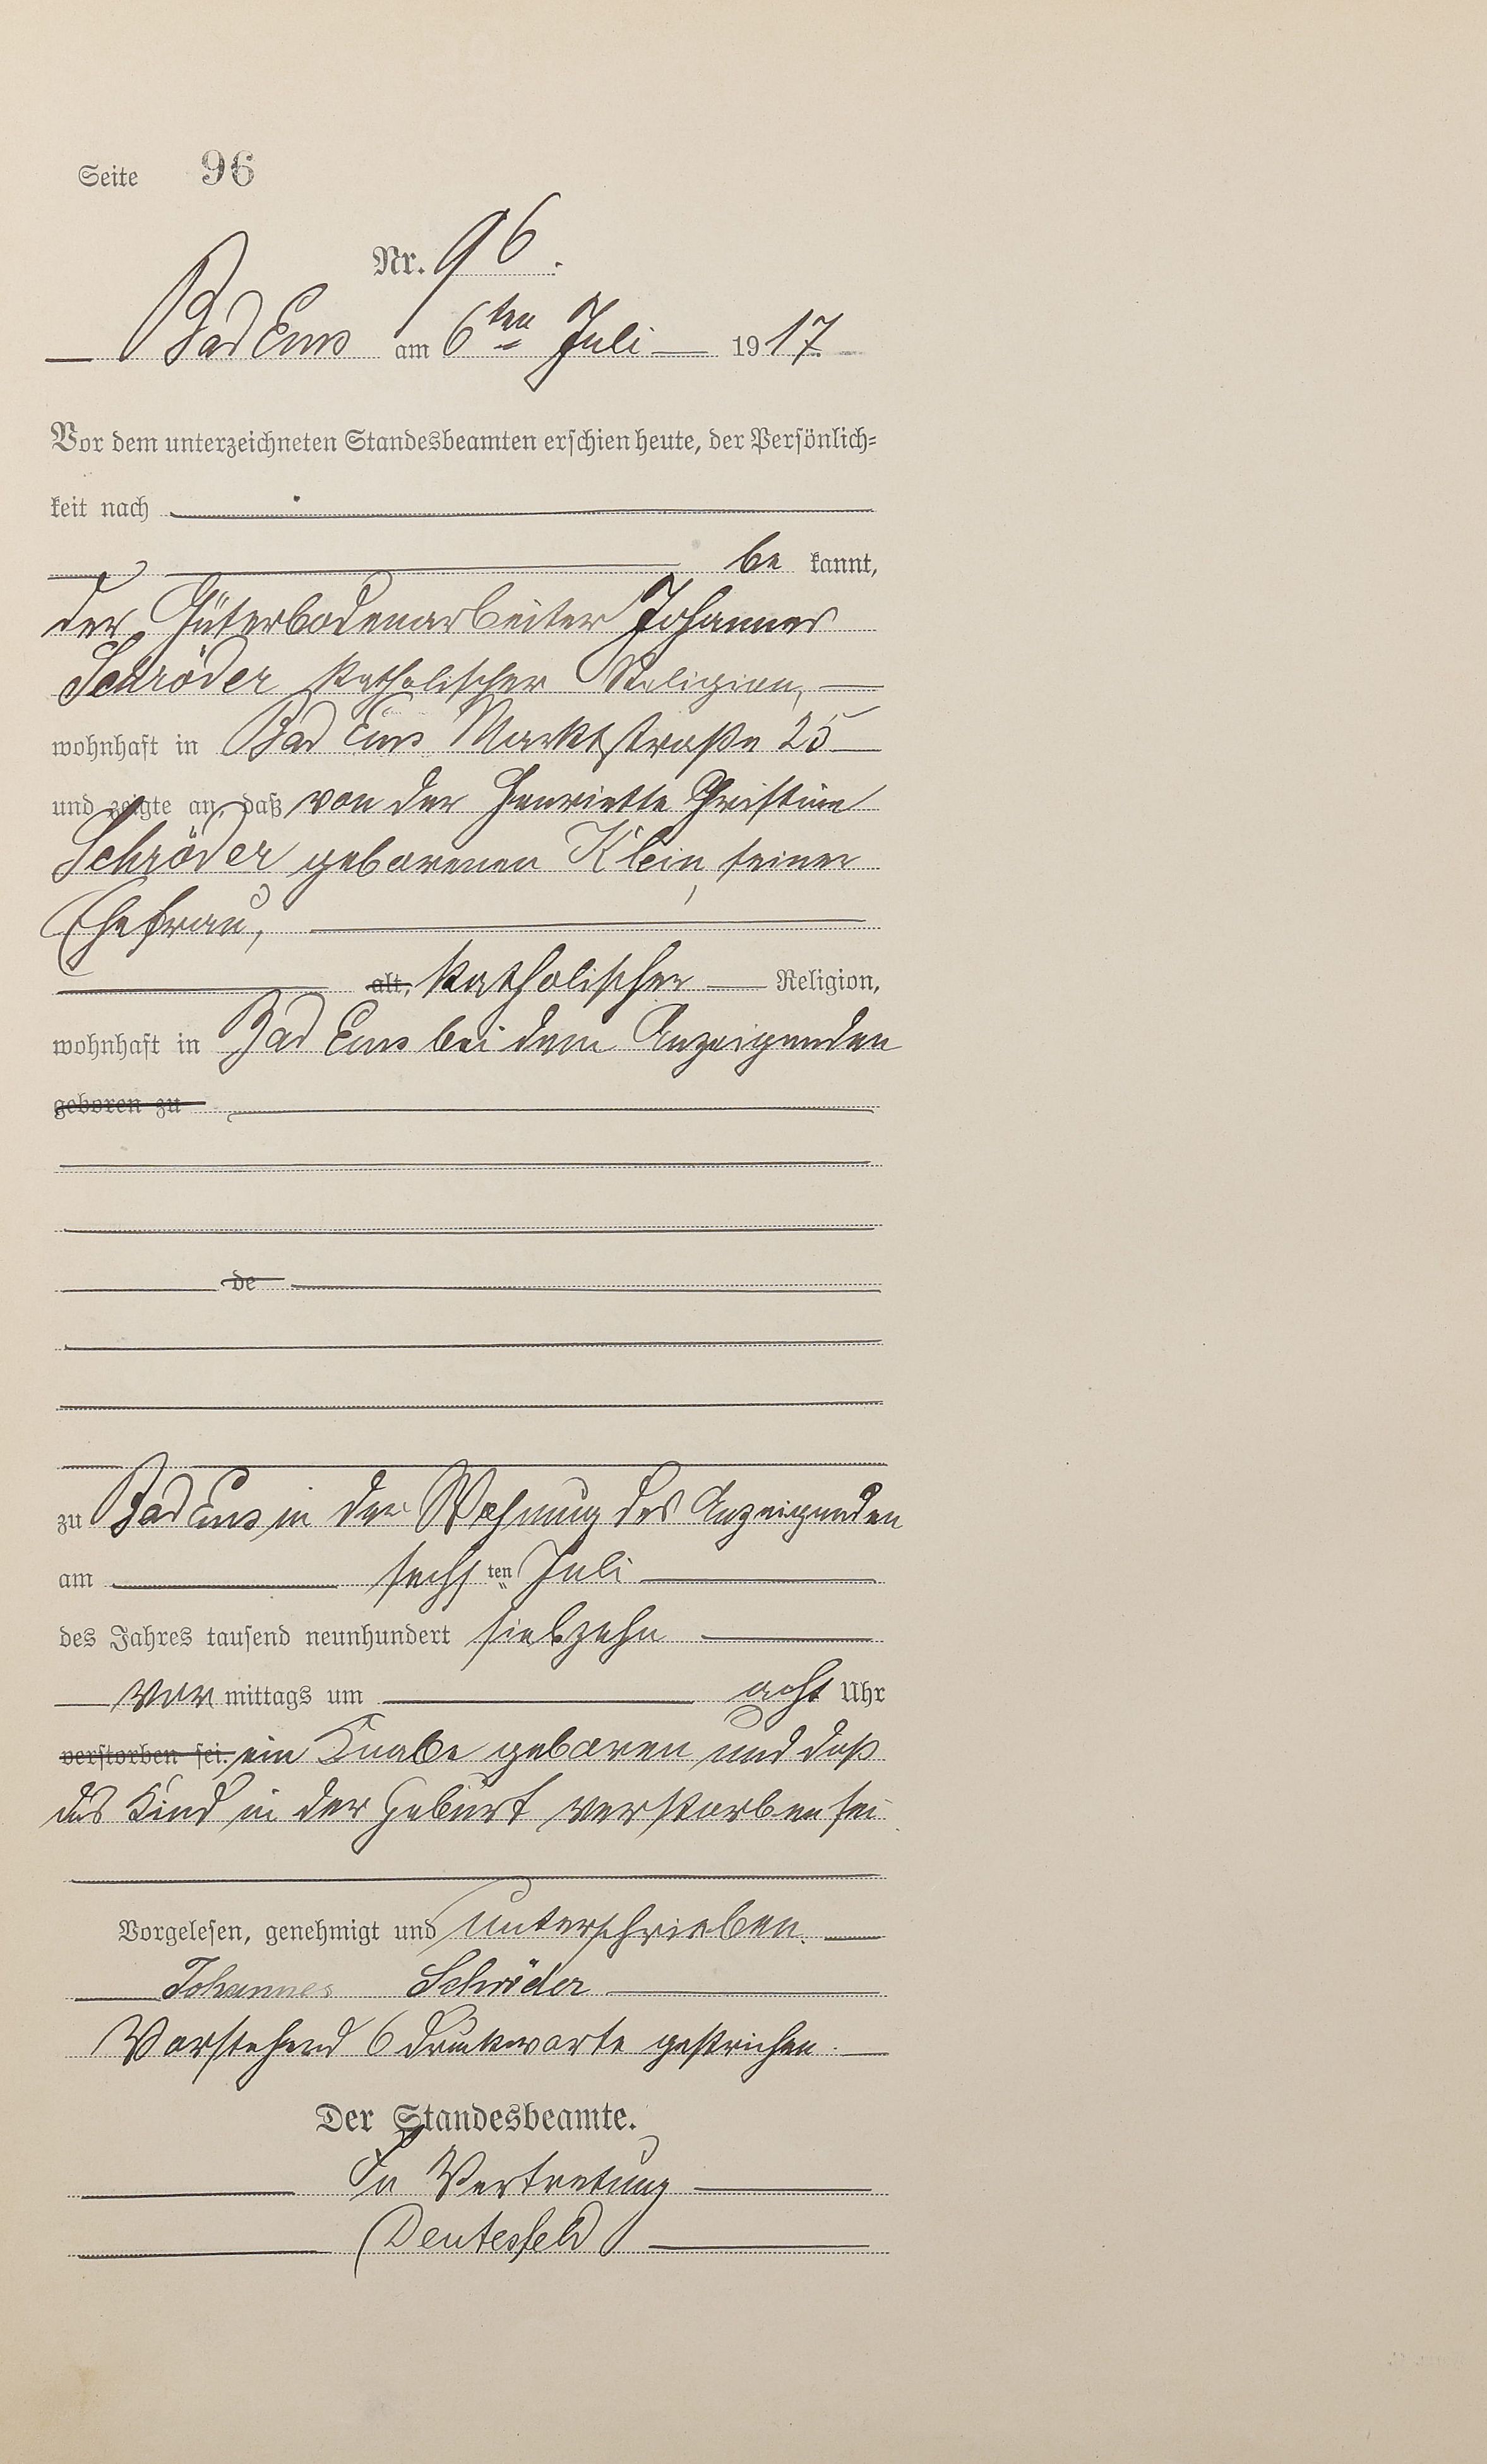 Seite 96
Nr. 96.
Bad Ems am 6ten Juli 1917
Vor dem unterzeichneten Standesbeamten erschien heute, der Persönlich-
keit nach
be kannt,
der Güterbodenarbeiter Johannes
Schröder katholischer Religion,
wohnhaft in Bad Ems Marktstraße 25
und zeigte an, daß von der Henriette Christine
Schröder geborenen Klein, seiner
Ehefrau,
alt, katholischer Religion,
wohnhaft in Bad Ems bei dem Anzeigenden
geboren zu
de
zu Bad Ems in der Wohnung des Anzeigenden
am sechsten Juli
des Jahres tausend neunhundert siebzehn
vor mittags um acht Uhr
verstorben sei. ein Knabe geboren und daß
das Kind in der Geburt verstorben sei
Vorgelesen, genehmigt und unterschrieben.
Johannes Schröder
Vorstehend 6 Druckworte gestrichen.
Der Standesbeamte.
In Vertretung